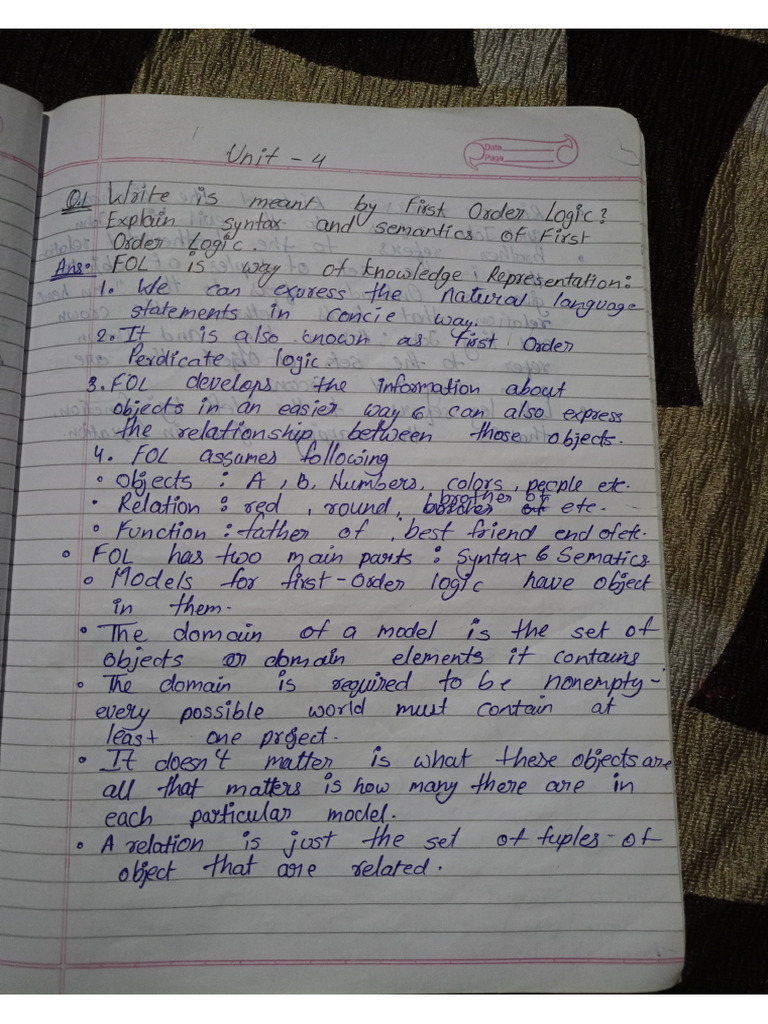 Unit - 4
Date
Page
Q.1 Write is meant by First Order Logic?
Explain syntax and semantics of First
Order Logic.
Ans:- FOL is way of knowledge Representation:
1. We can express the Natural language
statements in concie way.
2. It is also known as first Order
Perdicate logic.
3. FOL develops the information about
objects in an easier way & can also express
the relationship between those objects.
4. FOL assumes following
• Objects : A, B, Numbers, colors, people etc.
• Relation : red, round, brother of etc.
• Function : father of, best friend end of etc.
• FOL has two main parts : Syntax & Sematics.
• Models for first-Order logic have object
in them.
• The domain of a model is the set of
objects or domain elements it contains
• The domain is required to be nonempty-
every possible world must contain at
least one project.
• It doesn't matter is what these objects are
all that matters is how many there are in
each particular model.
• A relation is just the set of tuples - of
object that are related.